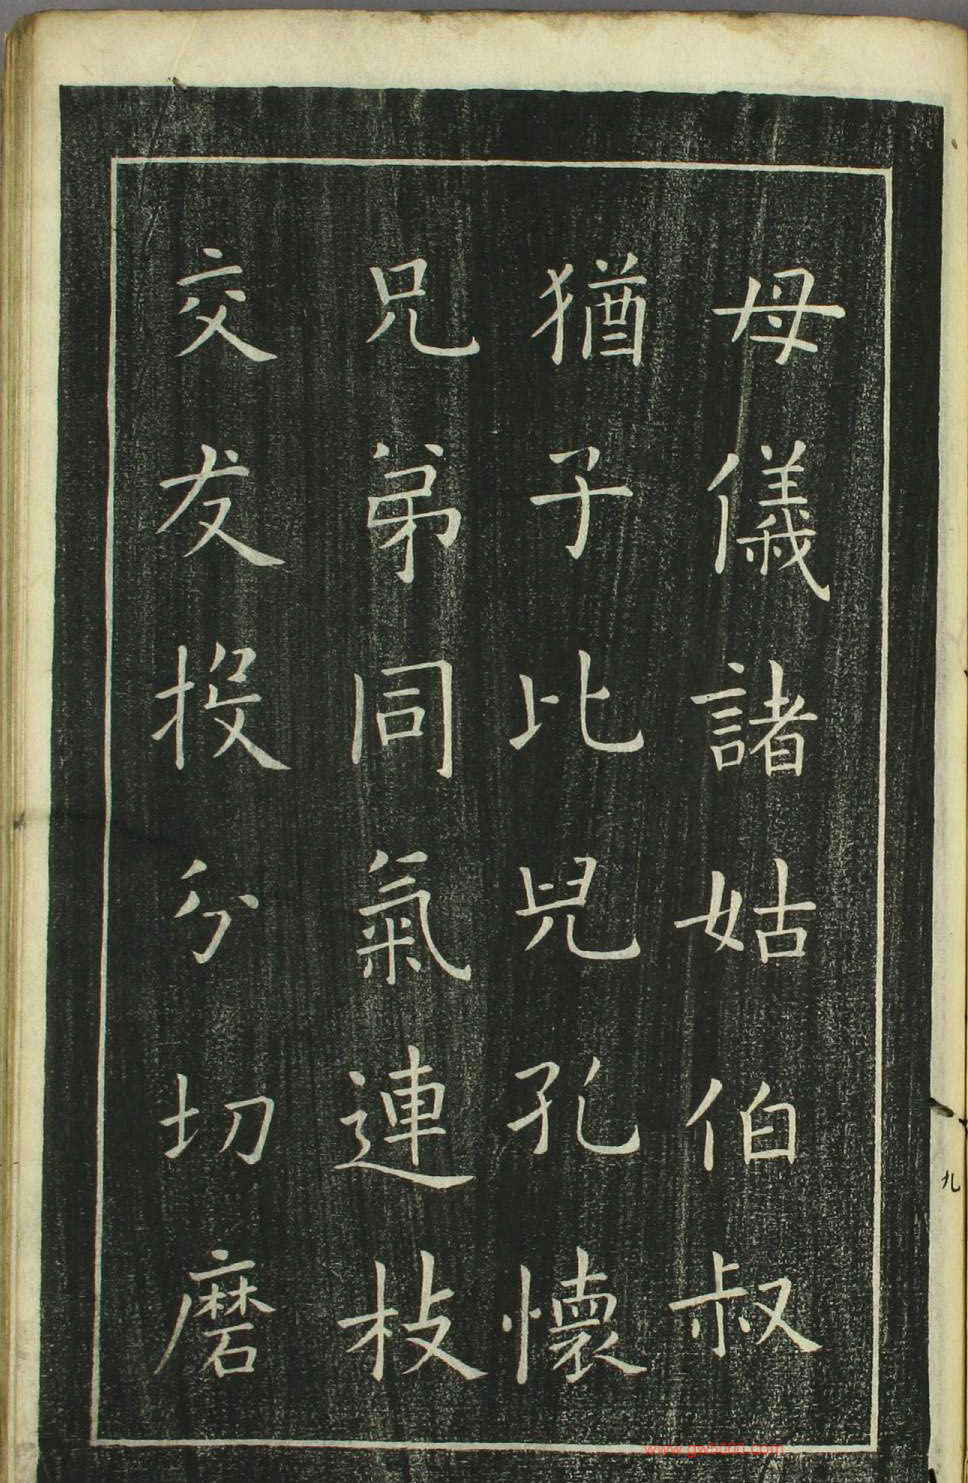 母儀諸姑伯叔
猶子比兒孔懷
兄弟同氣連枝
交友投分切磨
九